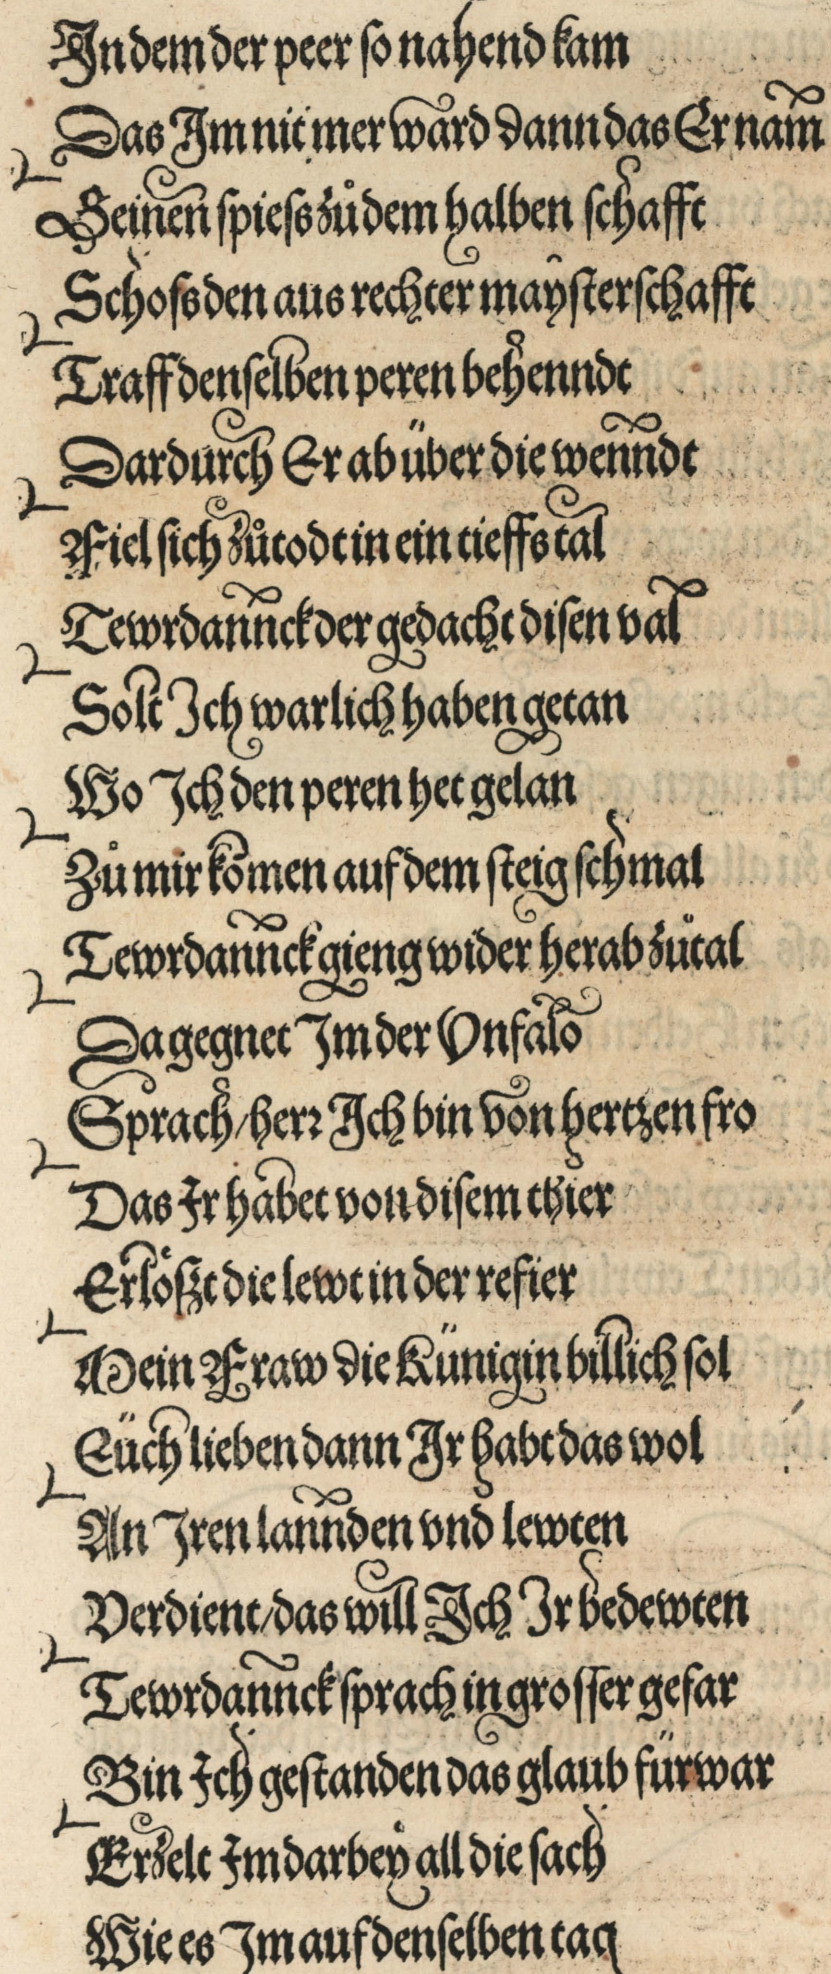 In dem der peer so nahend kam
Das Im nit mer ward dann das Er nam
Seinen spiess zů dem halben schafft
Schoss den aus rechter maÿsterschafft
Traff denselben peren behenndt
Dardurch Er ab über die wenndt
Fiel sich zů todt in ein tieffs tal
Tewrdannck der gedacht disen val
Solt Ich warlich haben getan
Wo Ich den peren het gelan
Zů mir komen auf dem steig schmal
Tewrdannck gieng wider herab zů tal
Da gegnet Im der Vnfalo
Sprach / herr Ich bin von hertzen fro
Das Ir habet von disem thier
Erlößt die lewt in der refier
Mein Fraw die Künigin billich sol
Eüch lieben dann Ir habt das wol
An Iren lannden vnd lewten
Verdient / das will Ich Ir bedewten
Tewrdannck sprach in grosser gefar
Bin Ich gestanden das glaub fürwar
Erzelt Im darbeÿ all die sach
Wie es Im auf denselben tag